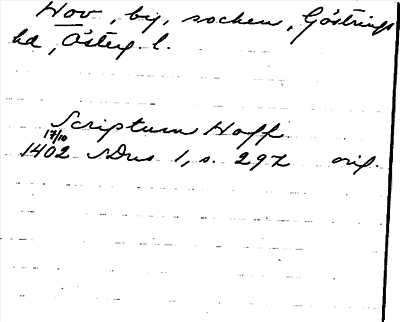 Hov, by, socken, Göstrings
hd, Österg l.
Scriptum Hoff
17/10
1402 SDns 1, s. 292 orig.